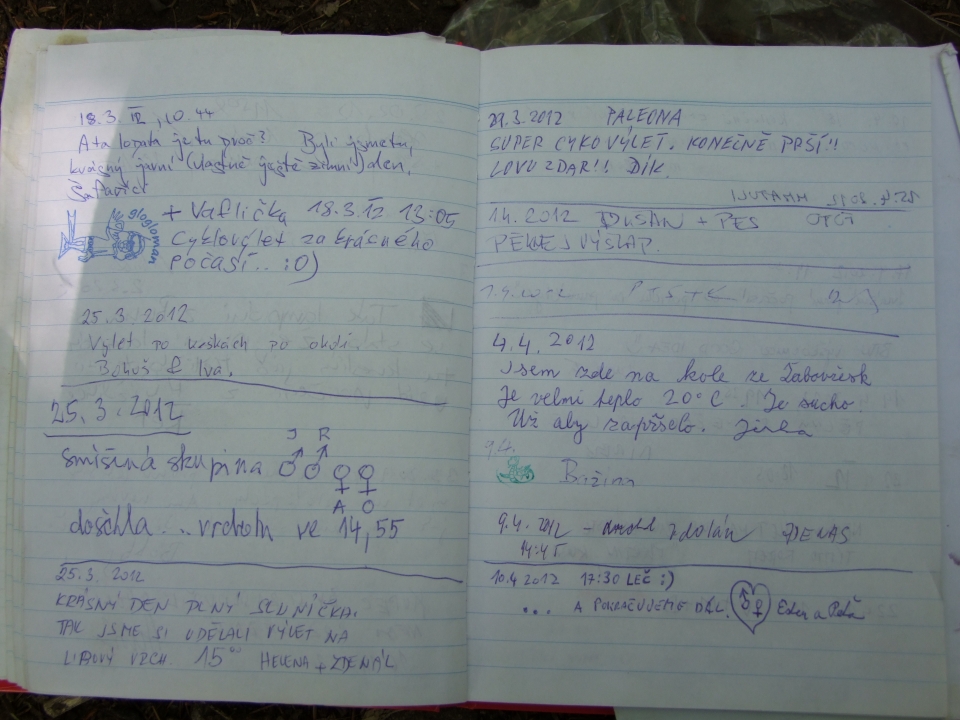 18.3. 12, 10.44
A ta lopata je tu proč? Byli jsme tu,
krásný jarní (vlastně ještě zimní) den,
glogloman
+ Vaflička 18.3.12 13:05
Cyklovýlet za krásného
počasí.. :0)
25.3. 2012
Výlet po keškách po okolí.
Bohuš & Iva.
25.3.2012
smíšená skupina J R
A O
došchla .. vrcholu ve 14,55
25.3. 2012
KRÁSNÝ DEN PLNÝ SLUNÍČKA.
TAK JSME SI UDĚLALI VÝLET NA
LIPOVÝ VRCH. 15°° HELENA + ZDENÁL
29.3.2012 PALEONA
SUPER CYKOVÝLET. KONEČNĚ PRŠÍ!!
LOVU ZDAR!! DÍK.
1 4. 2012 DUŠAN + PES OTOT
PĚKNEJ VÝŠLAP.
1.4.2012 P + S + K
4.4.2012
Jsem zde na kole ze Žabovřesk
Je velmi teplo 20°C. Je sucho.
Už aby zapršelo. Jirka
9.4.
9.4.2012 - zdolán ZDENAS
14:45
10.4 2012 17:30 LEČ :)
... A POKRAČUJEME DÁL. Ester a Péťa